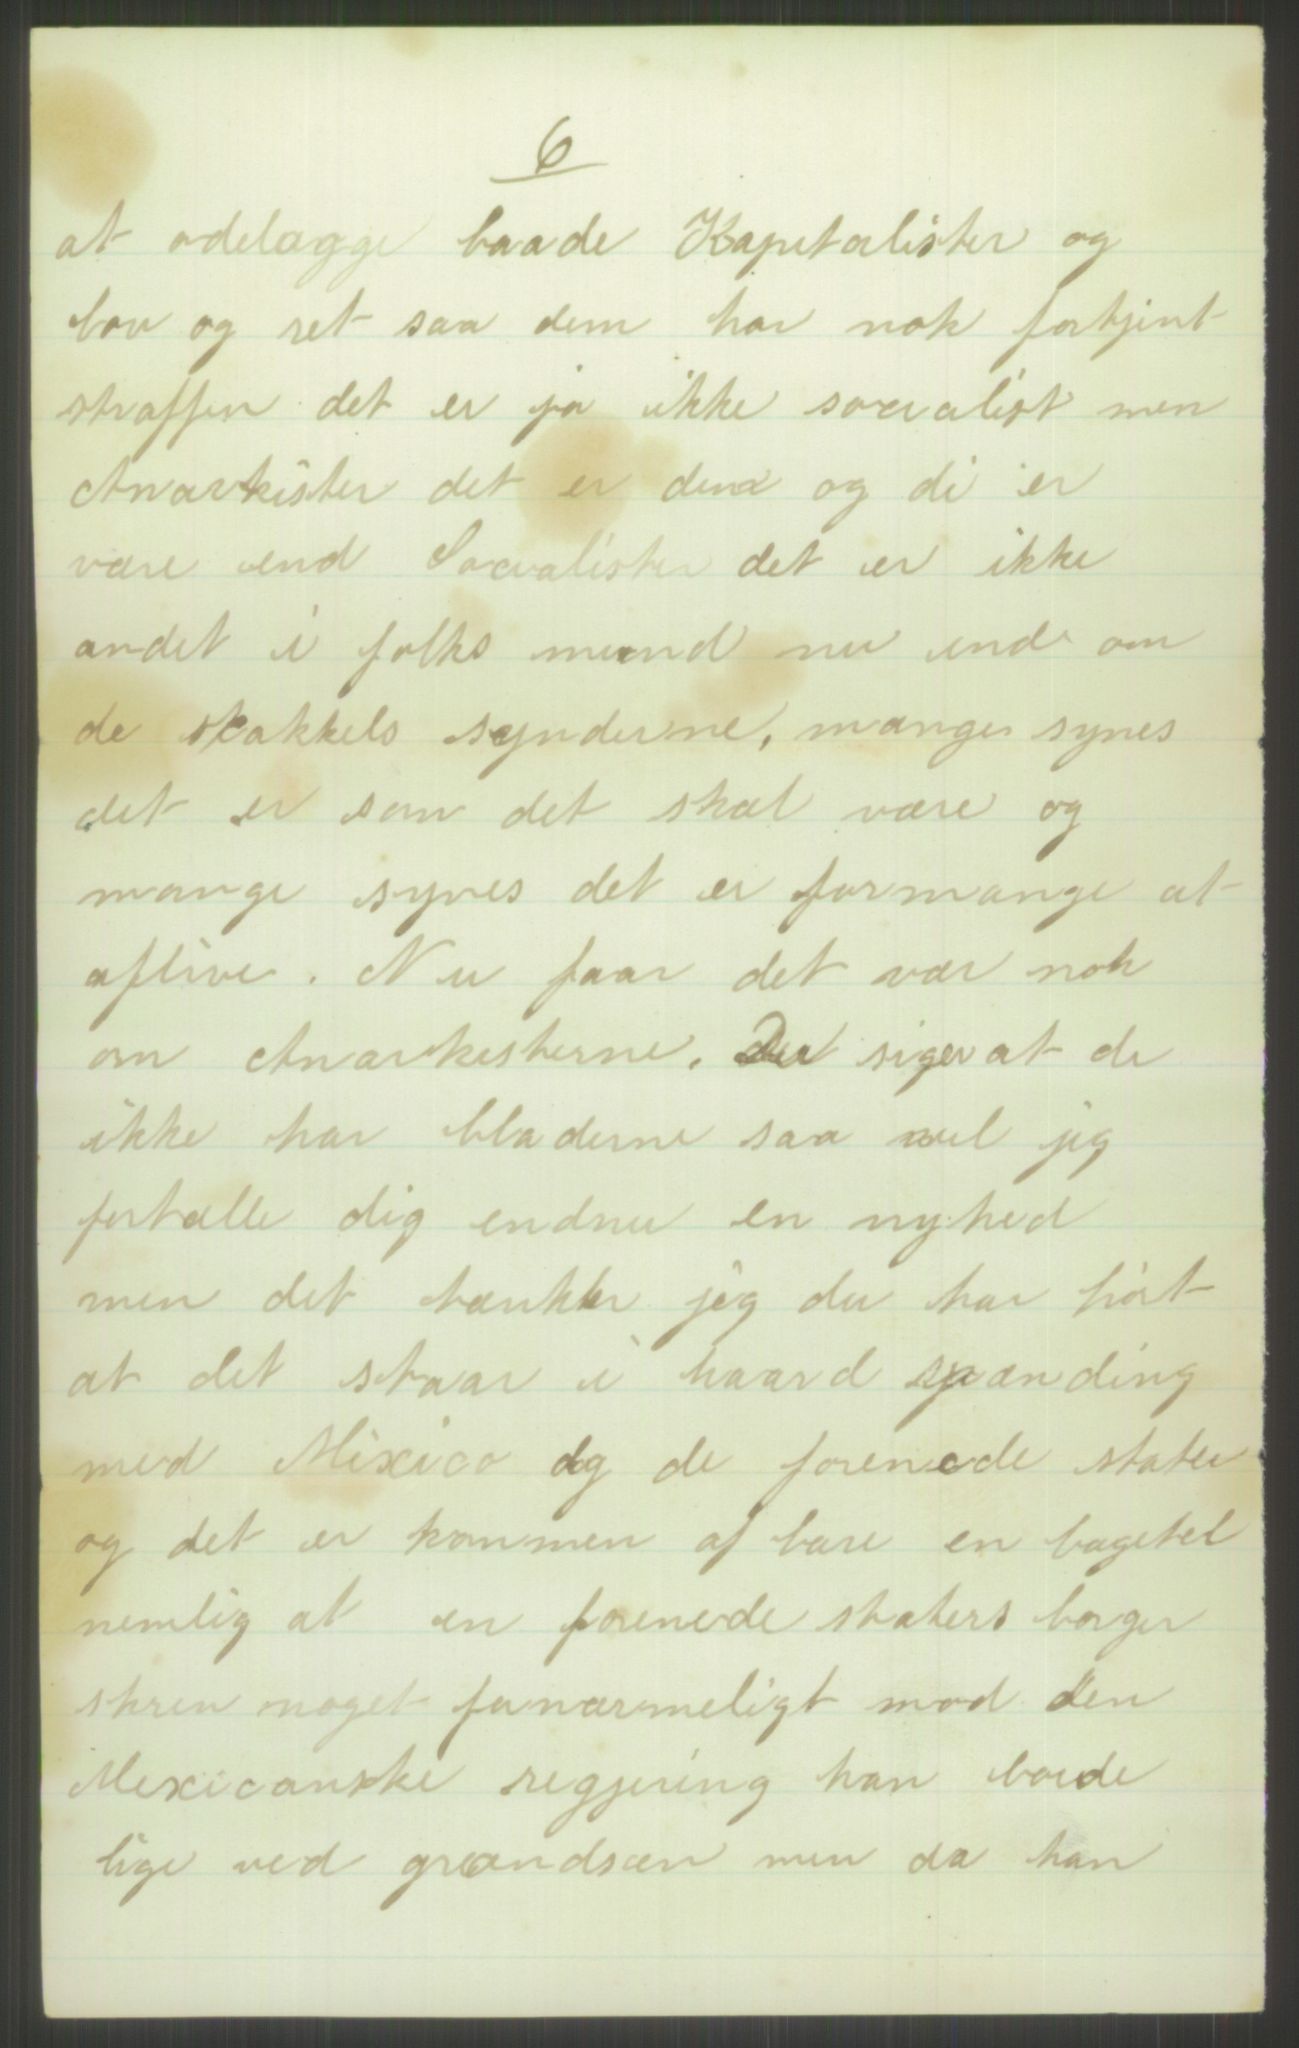 6
at ødelægge baade Kapitalister og
lov og ret saa dem har nok fortjent
straffen det er jo ikke socialist men
Anarkister det er dem og di er
være end Socialister det er ikke
andet i folks mund nu end om
de stakkels synderne, mange synes
det er som det skal være og
mange synes det er formange at
aflive. Nu faar det vær nok
om Anarkisterne. Du siger at de
ikke har bladerne saa vel jeg
fortælle dig endnu en nyhed
men det tænkker jeg du har hørt
at det staar i haard spænding
med Mixico og de forenede stater
og det er kommen af bare en bagetel
nemlig at en forenede staters borger
skrev noget fornærmeligt mod den
Mexicanske regjering han boede
lige ved grændsen men da han